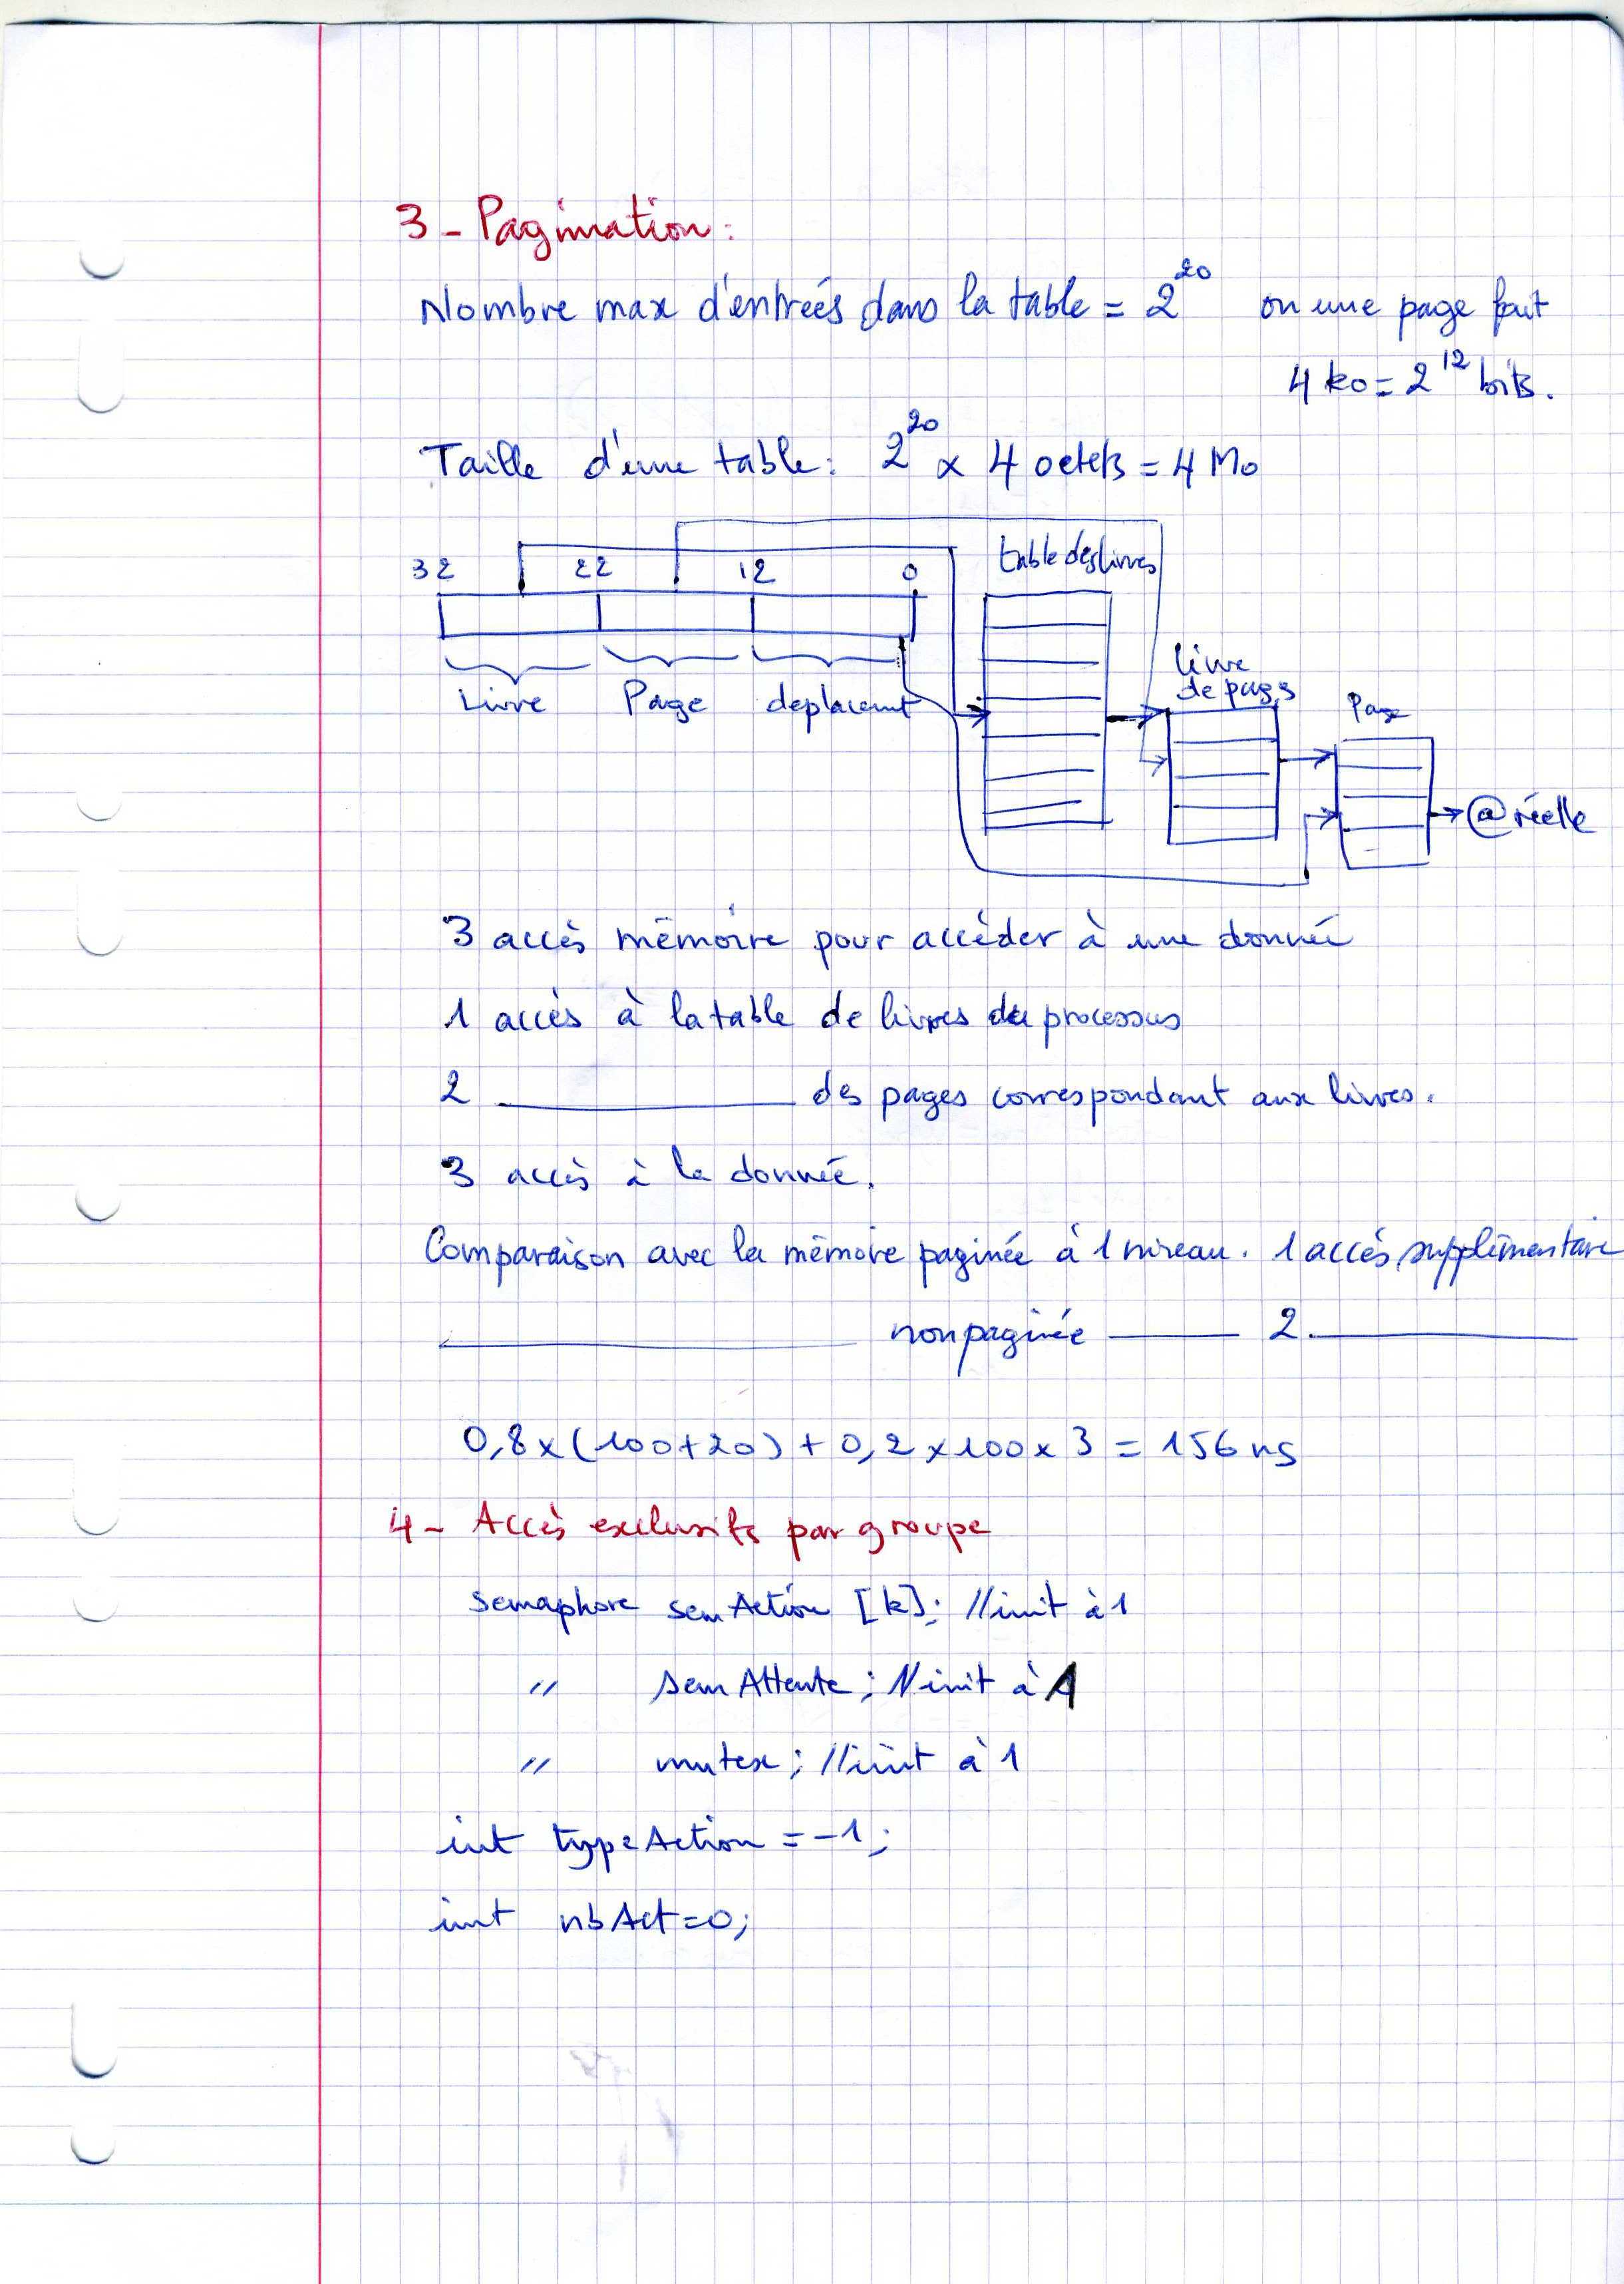 3 - Pagination :
Nombre max d'entrées dans la table = 2^20 on une page fait
4 ko = 2^12 bits.
Taille d'une table : 2^20 x 4 octets = 4 Mo
32 22 12 0 table des livres
Livre Page deplacemt
livre de pages
Page
@ réelle
3 accès mémoire pour accéder à une donnée
1 accès à la table de livres du processus
2 ———— des pages correspondant aux livres.
3 accès à la donnée.
Comparaison avec la mémoire paginée à 1 niveau. 1 accès supplémentaire
———— non paginée ———— 2 ————
0,8 x (100+20) + 0,2 x 100 x 3 = 156 ns
4 - Accès exclusifs par groupe
semaphore semAction [k]; //init à 1
" semAttente; //init à 1
" mutex; //init à 1
int typeAction = -1;
int nbAct = 0;